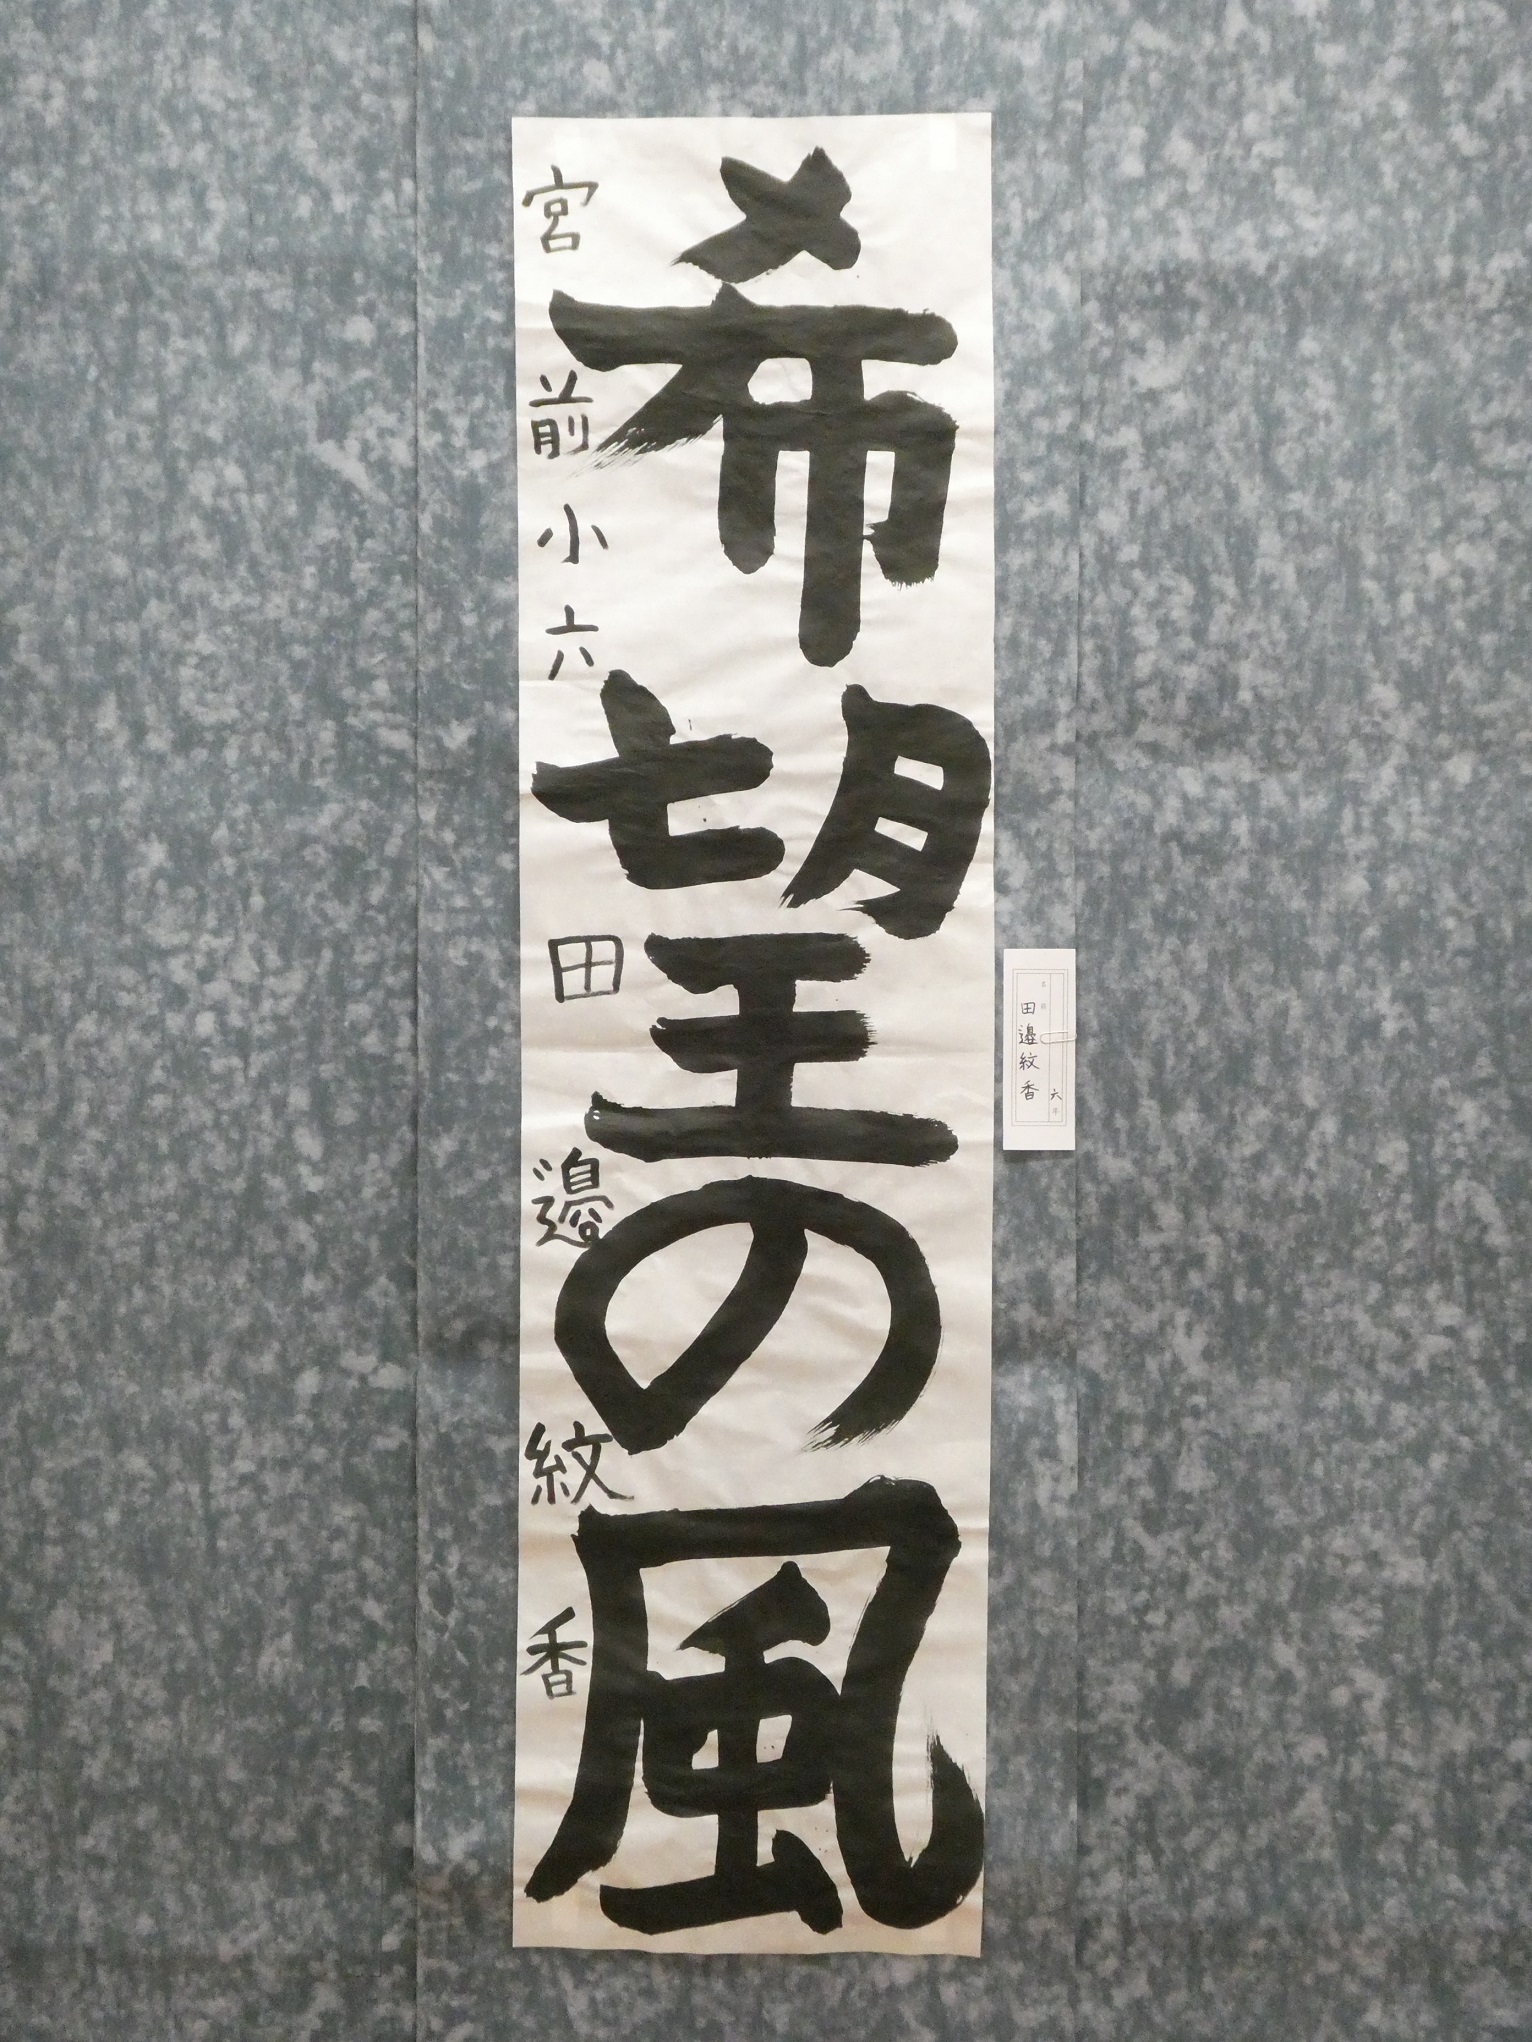 希望の風
宮前小六 田邉紋香
六年
名前
田邉紋香